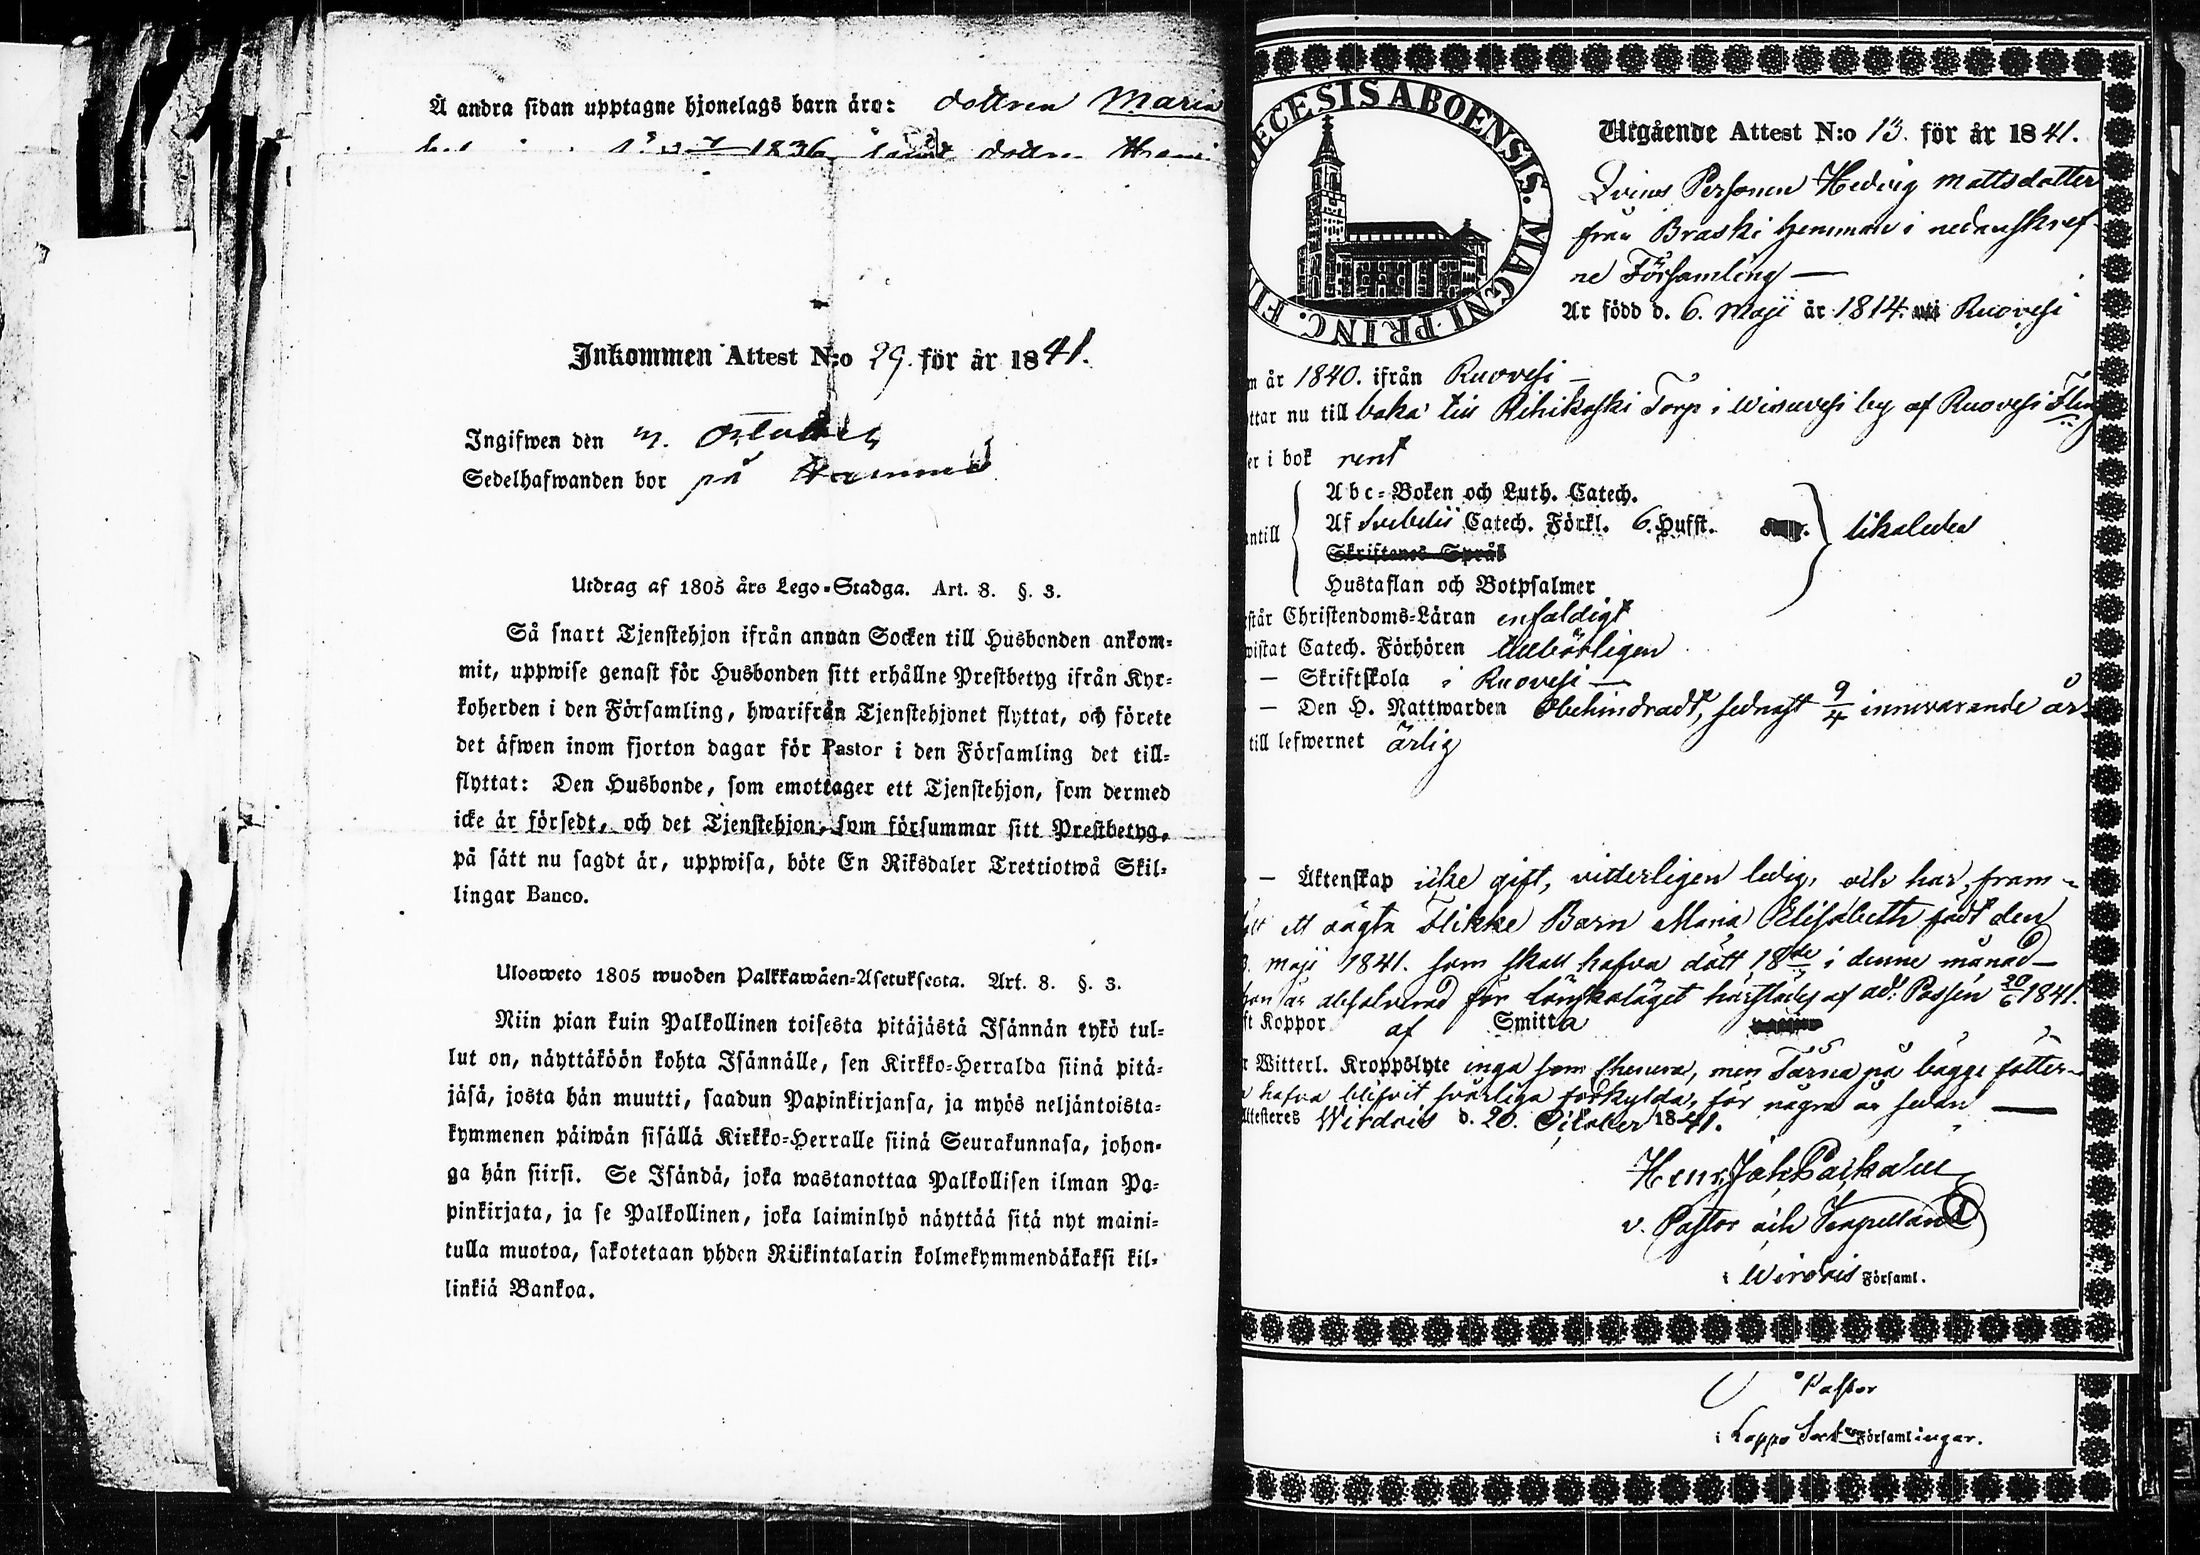 Å andra sidan upptagne hjonelags barn äro: dottren Maria
1836, samt dottren
Inkommen Attest N:o 29. för år 1841.
Ingifwen den October
Sedelhafwanden bor på
Utdrag af 1805 års Lego-Stadga. Art. 8. §. 3.
Så snart Tjenstehjon ifrån annan Socken till Husbonden ankom-
mit, uppwise genast för Husbonden sitt erhållne Prestbetyg ifrån Kyr-
koherden i den Församling, hwarifrån Tjenstehjonet flyttat, och förete
det äfwen inom fjorton dagar för Pastor i den Församling det till-
flyttat: Den Husbonde, som emottager ett Tjenstehjon, som dermed
icke är försedt, och det Tjenstehjon, som försummar sitt Prestbetyg,
på sätt nu sagdt är, uppwisa, böte En Riksdaler Trettiotwå Skil-
lingar Banco.
Ulosweto 1805 wuoden Palkkawäen-Asetuksesta. Art. 8. §. 3.
Niin pian kuin Palkollinen toisesta pitäjästä Isännän tykö tul-
lut on, näyttäköön kohta Isännälle, sen Kirkko-Herralda siinä pitä-
jäsä, josta hän muutti, saadun Papinkirjansa, ja myös neljäntoista-
kymmenen päiwän sisällä Kirkko-Herralle siinä Seurakunnasa, johon-
ga hän siirsi. Se Isändä, joka wastanottaa Palkollisen ilman Pa-
pinkirjata, ja se Palkollinen, joka laiminlyö näyttää sitä nyt maini-
tulla muotoa, sakotetaan yhden Riikintalarin kolmekymmendäkaksi kil-
linkiä Bankoa.
ECESIS ABOENSIS. MAGNI PRINC. FI
Utgående Attest N:o 13. för år 1841.
Qvins Personen Hedvig Mattsdotter
från Braski hemman i nedanskref-
ne Församling —
Är född d. 6. Maji år 1814. uti Ruovesi
m år 1840. ifrån Ruovesi —
ttar nu till baka till Rihikoski Torp i Wisuvesi by af Ruovesi
er i bok rent
Abc-Boken och Luth. Catech.
antill Af Svebelii Catech. Förkl. 6. Hufst. likaledes
Skriftenes Språk
Hustaflan och Botpsalmer
står Christendoms-Läran enfaldigt
wistat Catech. Förhören tillbörligen
— Skriftskola i Ruovesi —
— Den H. Nattwarden Obehindradt, sednast 9/4 innevarande år.
till lefwernet ärlig
— Äktenskap icke gift, vitterligen ledig, och har fram-
ett oägta Flikke Barn Maria Elisabeth född den
Maji 1841. som skall hafva dött 18de i denne månad —
hon är absolverad för lönskaläget härstädes af ad: Passin 20/6 1841.
ft Koppor af Smitta
r Witterl. Kroppslyte inga som synera, men Tårna på bägge fötter-
hafva blifvit svårliga förkylda, för några år sedan —
Attesteres Wirdois d. 20. October 1841.
Henr. Joh.
v. Pastor och Kapellan
i Wirdois Församl.
Pastor
i Lappo Församlingar.